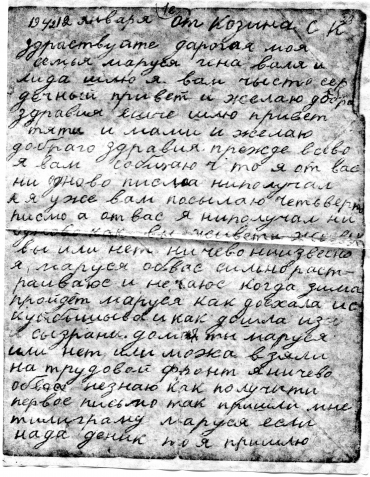 1942 января от Козина С К
здраствуите дарогая моя
семья маруся гина валя и
лида шлю я вам чысто сер
дечный привет и желаю добра
здравия есче шлю привет
тяти и мами и желаю
добраго здравия прежде всево
я вам собчаю что я от вас
ни дново письма ниполучал
а я уже вам посылаю четьверта
писмо а от вас я ниполучал ни
как вы живети жывы
вы или нет ничево ниизвесно
я маруся обвас сильно раст-
раиваюс и нечаюс когда зима
пройдет маруся как доехала ис
и как дошла из
сызрани дома ти маруся
или нет или можа взяли
на трудовой фронт я ничево
обвас незнаю как получити
первое письмо так пришли мне
тилиграму маруся если
нада деник то я пришлю